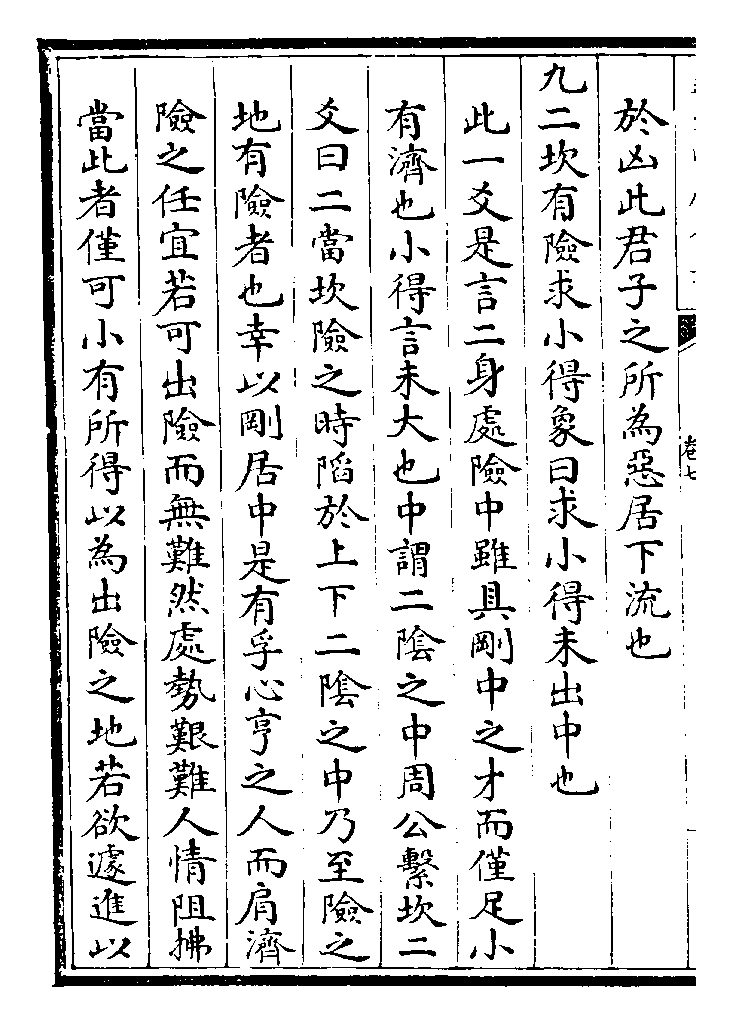 於凶此君子之所為惡居下流也
九二坎有險求小得象曰求小得未出中也
此一爻是言二身處險中雖具剛中之才而僅足小
有濟也小得言未大也中謂二陰之中周公繫坎二
爻曰二當坎險之時陷於上下二陰之中乃至險之
地有險者也幸以剛居中是有孚心亨之人而肩濟
險之任宜若可出險而無難然處勢艱難人情阻拂
當此者僅可小有所得以為出險之地若欲遽進以
卷七